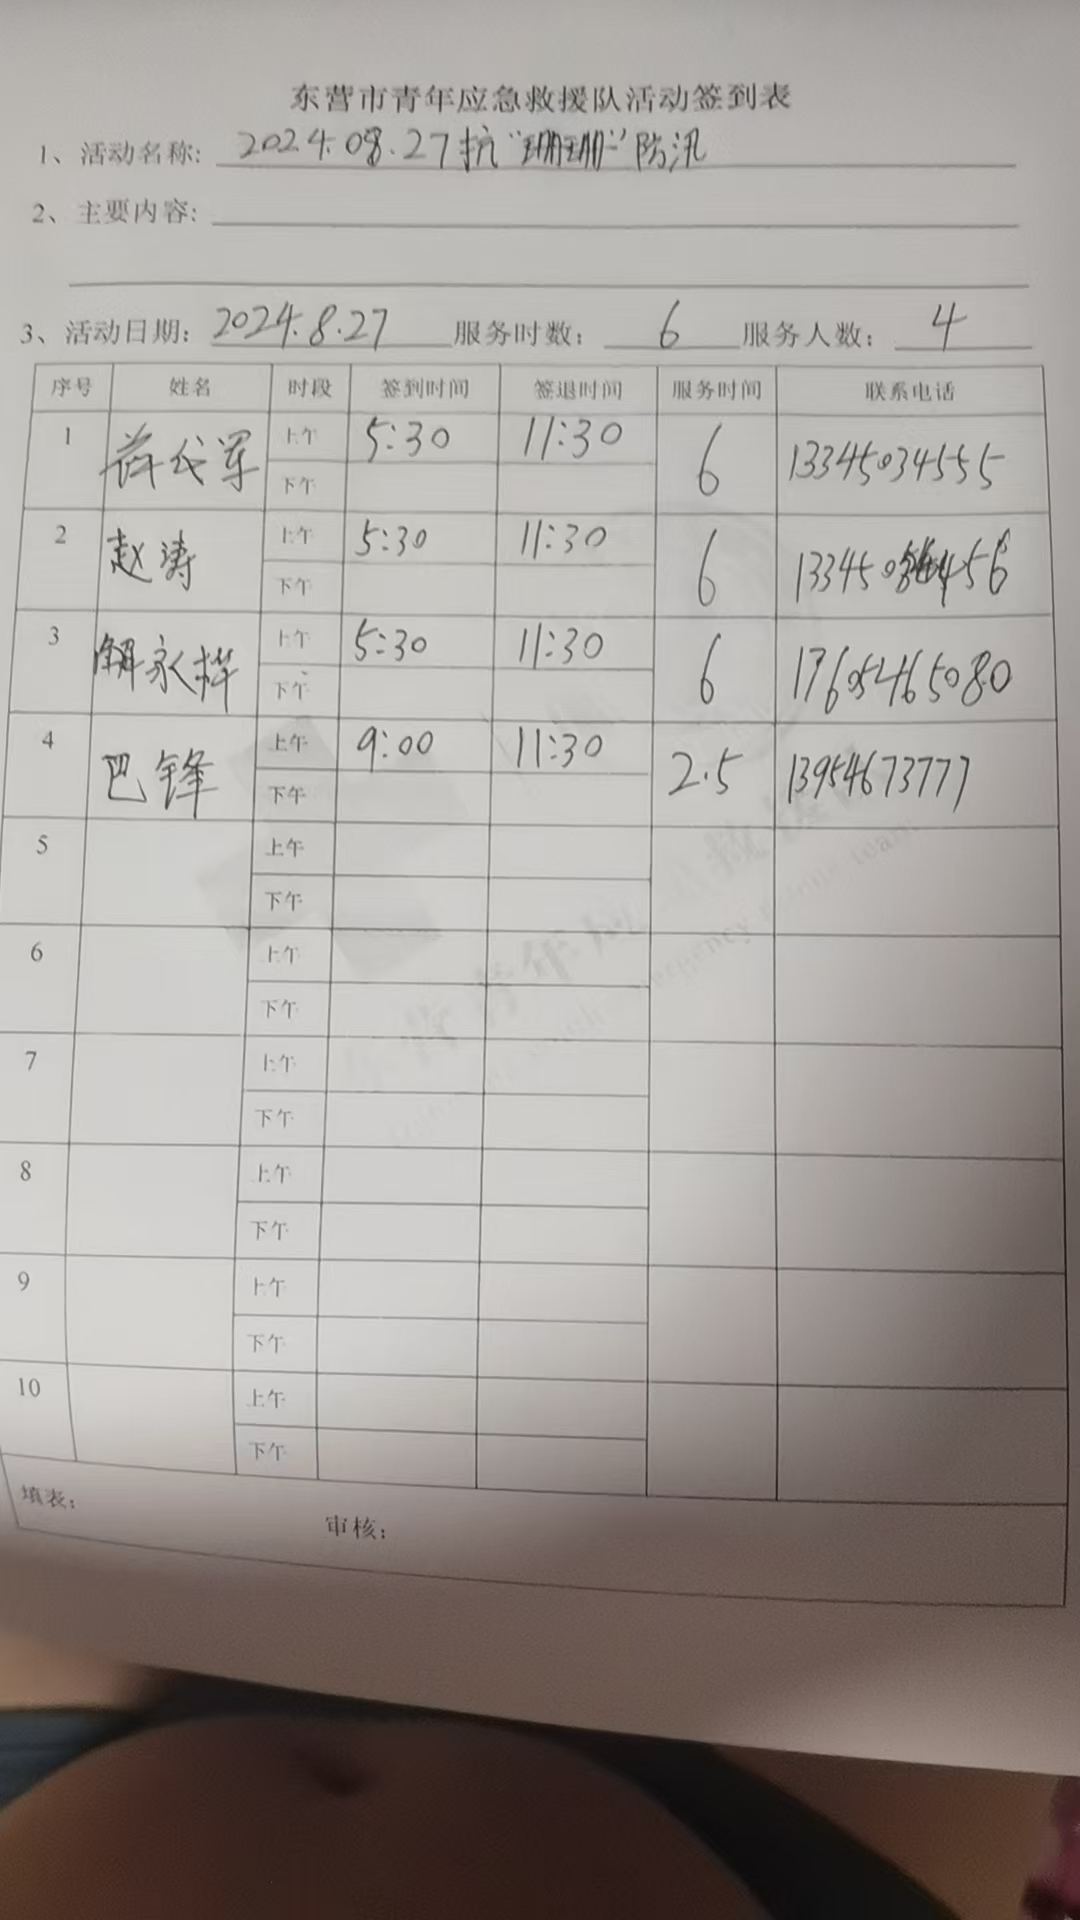 东营市青年应急救援队活动签到表
1、活动名称: 2024.08.27抗“珊珊”防汛
2、主要内容:
3、活动日期: 2024.8.27 服务时数: 6 服务人数: 4
序号 姓名 时段 签到时间 签退时间 服务时间 联系电话
1 上午 5:30 11:30 6 13345034555
下午
2 赵涛 上午 5:30 11:30 6
下午
3 解永桦 上午 5:30 11:30 6 17605465080
下午
4 巴锋 上午 9:00 11:30 2.5 13954673777
下午
5 上午
下午
6 上午
下午
7 上午
下午
8 上午
下午
9 上午
下午
10 上午
下午
填表:
审核: